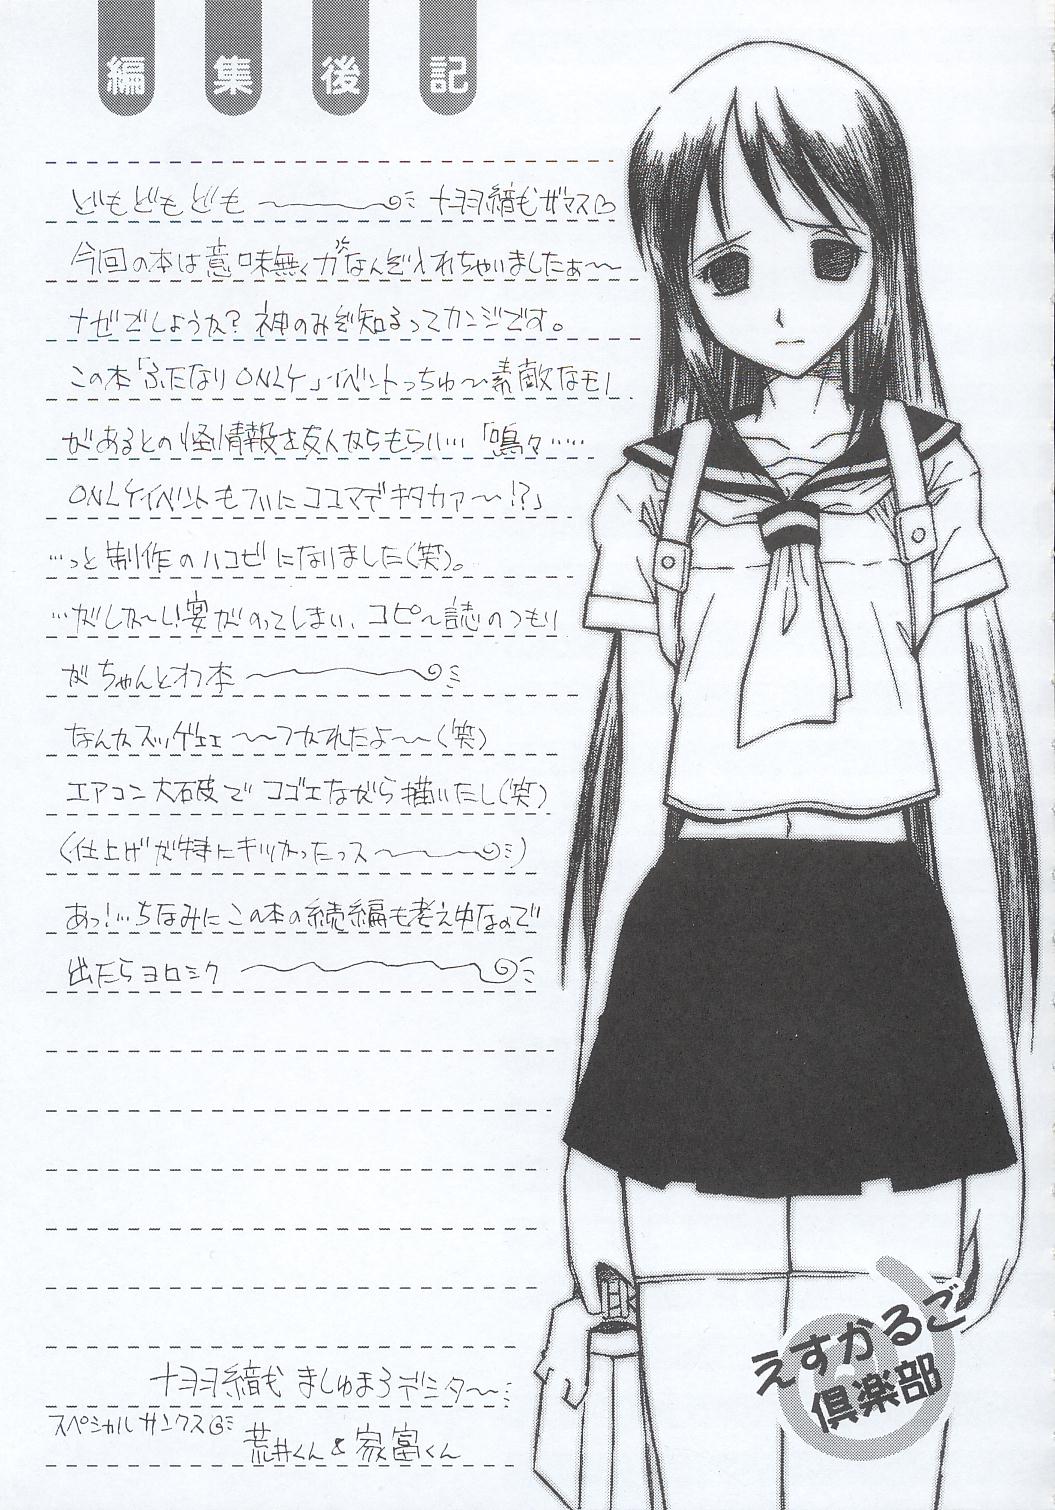 編集後記
どもどもども
今回の本は意味無くガなんぞ入れちゃいましたぁ〜〜
ナゼでしょうか？神のみぞ知るってカンジです。
この本「ふたなりONLY」イベントっちゅ〜素敵なモノ
があるとの怪情報を友人からもらい…「嗚々……
ONLYイベントもついにココマデキタカァ〜！？」
…っと制作のハコビになりました（笑）。
…がしか〜し！宴がのってしまい、コピ〜誌のつもり
がちゃんとオフ本
なんかズッゲェェ〜〜つかれたよ〜〜（笑）
エアコン大石破でコゴエながら描いたし（笑）
（仕上げが特にキツかったっス〜）
あっ！…ちなみにこの本の続編も考え中なので
出たらヨロシク
ましゅまろデミタ〜〜
スペシャルサンクス
荒井くん＆家富くん
えすかるご
倶楽部